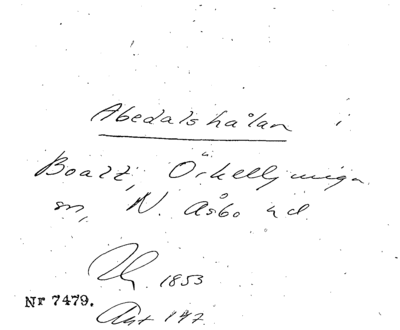 Abedalshålan
Boalt, Örkelljunga
sn, N. Åsbo hd
1853
Nr 7479.
Akt 147